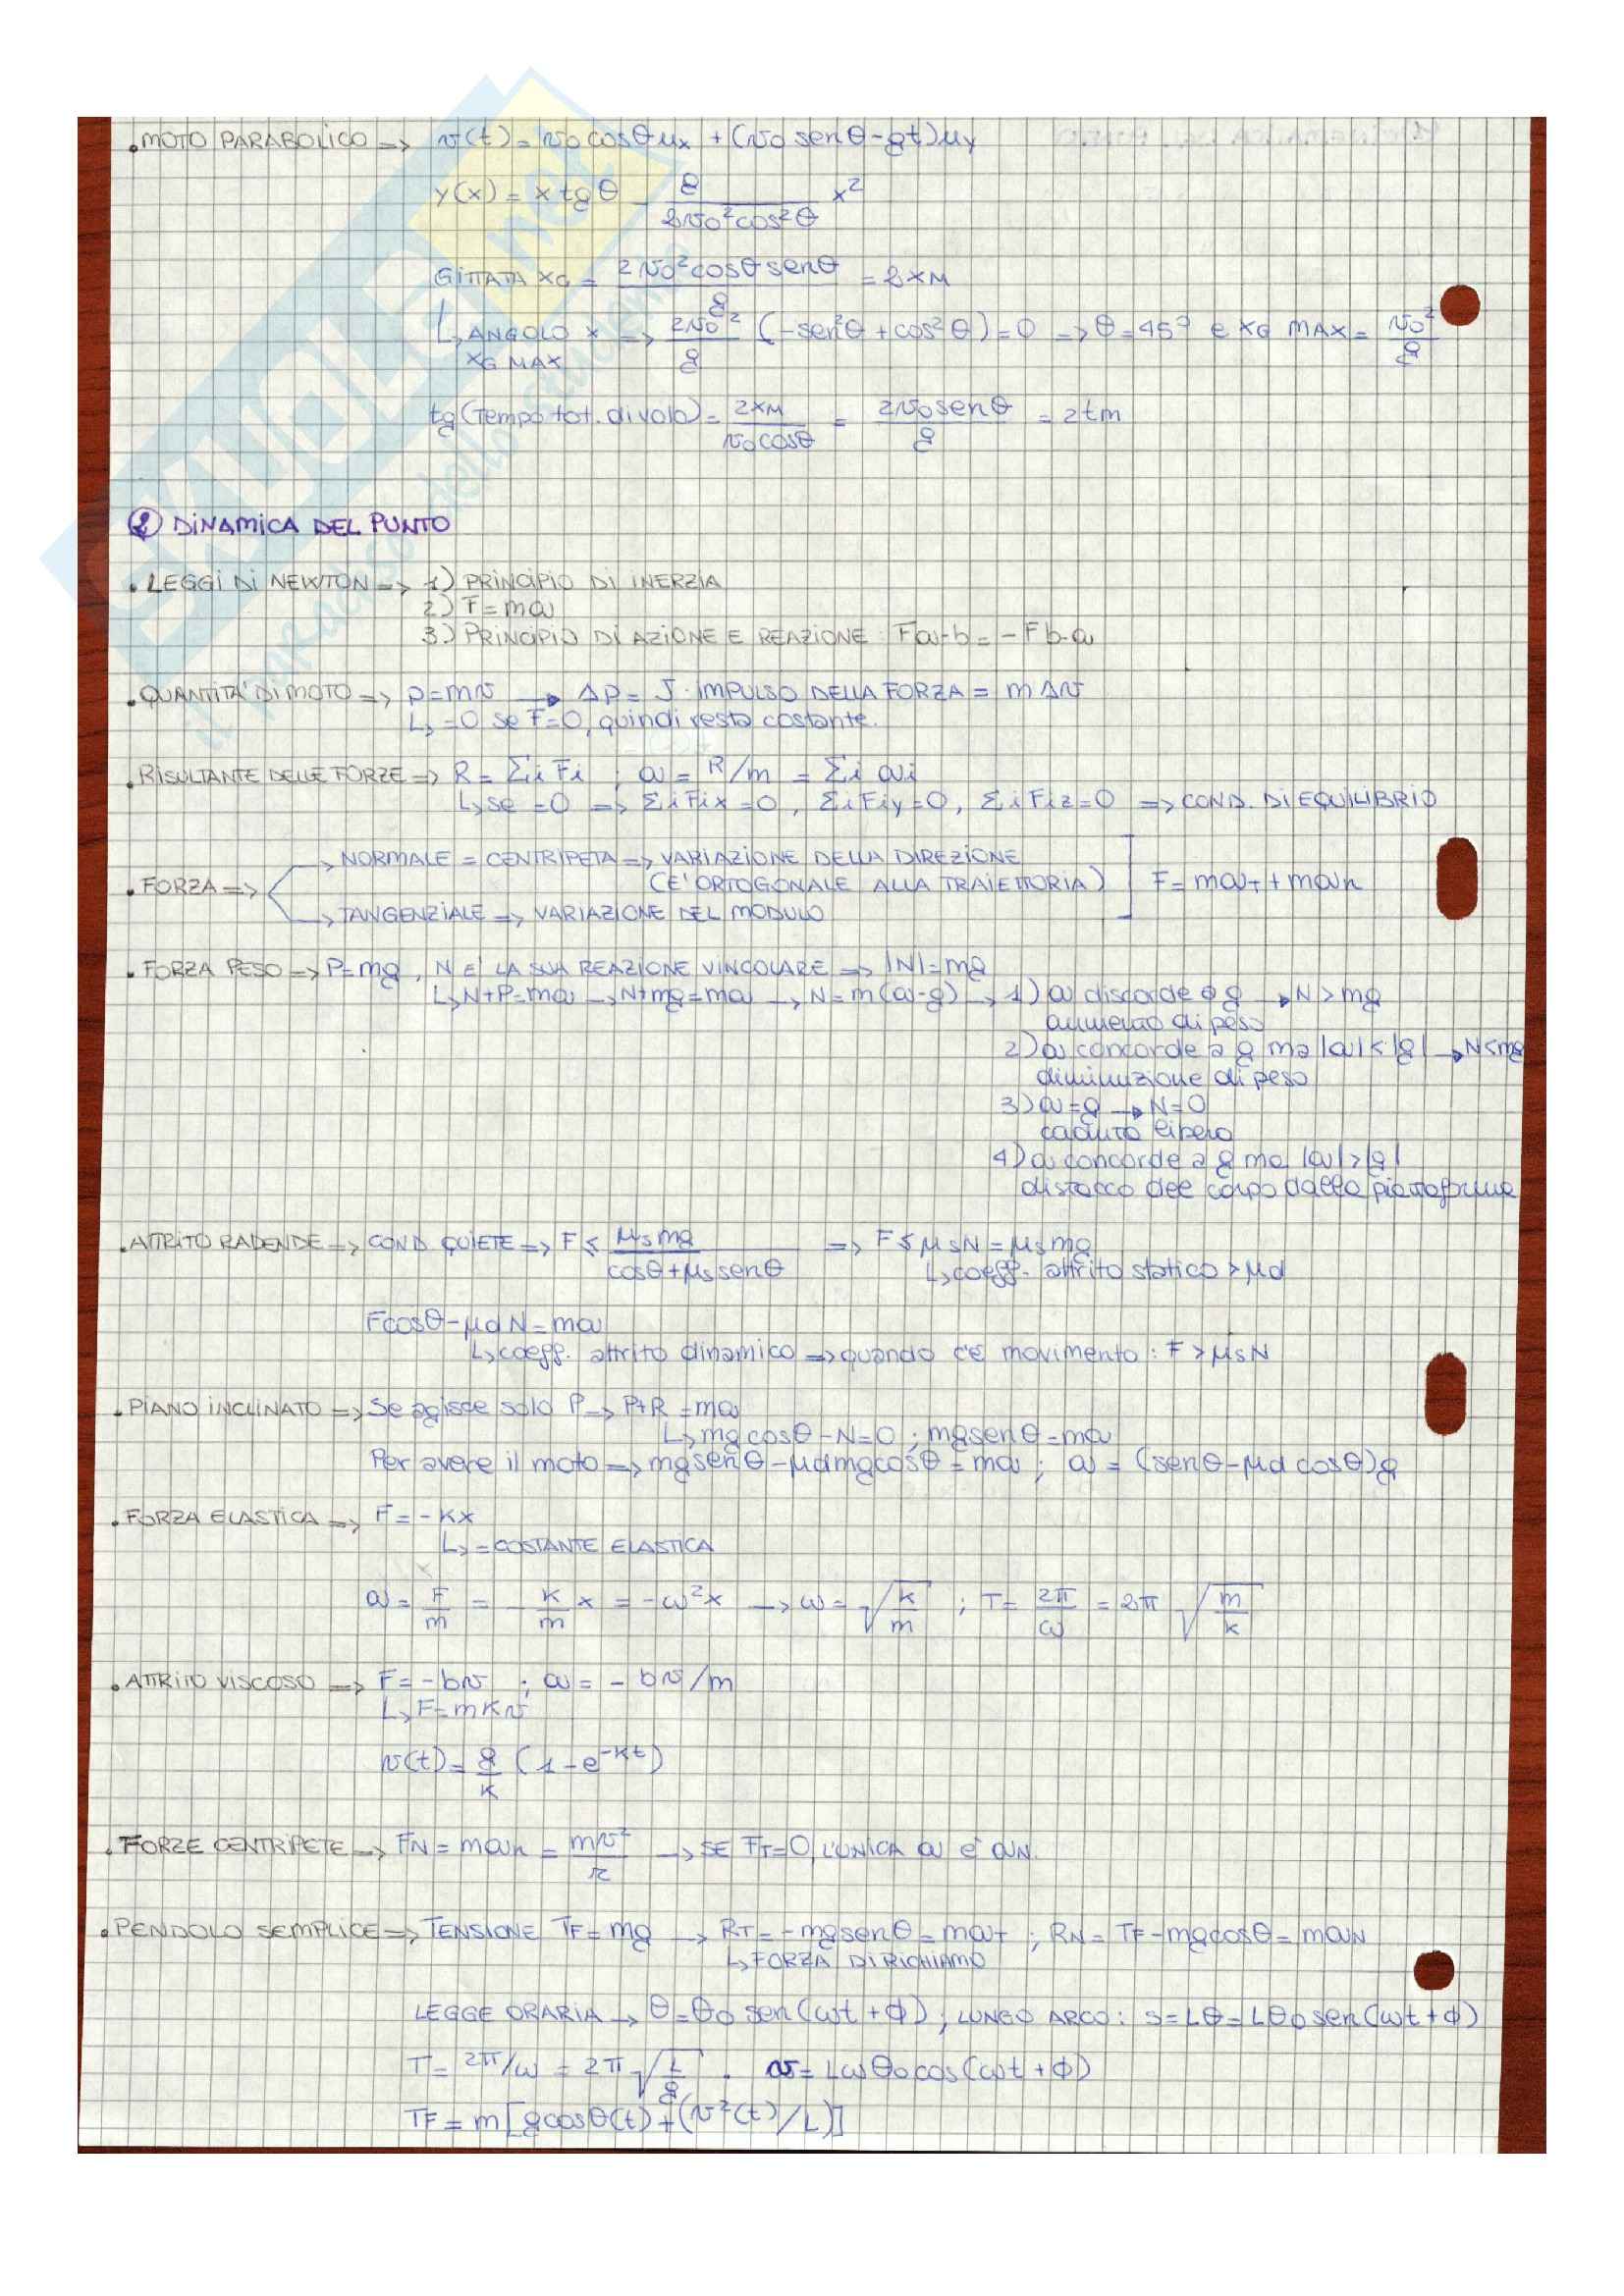 • MOTO PARABOLICO => v(t) = v0 cosθ ux + (v0 senθ - gt) uy
y(x) = x tgθ - g / 2v0² cos²θ x²
GITTATA xG = 2v0² cosθ senθ / g = 2xM
↳ ANGOLO x => 2v0² / g (-sen²θ + cos²θ) = 0 => θ = 45° e xG MAX = v0² / g
xG MAX
tg (Tempo tot. di volo) = 2xM / v0 cosθ = 2v0 senθ / g = 2tm
② DINAMICA DEL PUNTO
• LEGGI DI NEWTON => 1) PRINCIPIO DI INERZIA
2) F = ma
3) PRINCIPIO DI AZIONE E REAZIONE: Fa-b = -Fb-a
• QUANTITA' DI MOTO => p = mv → Δp = J: IMPULSO DELLA FORZA = mΔv
↳ = 0 se F = 0, quindi resta costante.
• RISULTANTE DELLE FORZE => R = Σi Fi ; a = R/m = Σi ai
↳ se = 0 => Σi Fix = 0, Σi Fiy = 0, Σi Fiz = 0 => COND. DI EQUILIBRIO
→ NORMALE = CENTRIPETA => VARIAZIONE DELLA DIREZIONE
(E' ORTOGONALE ALLA TRAIETTORIA)
• FORZA => F = maT + man
→ TANGENZIALE => VARIAZIONE DEL MODULO
• FORZA PESO => P = mg, N E' LA SUA REAZIONE VINCOLARE => |N| = mg
↳ N + P = ma → N + mg = ma → N = m(a - g) → 1) a discorde a g → N > mg
aumento di peso
2) a concorde a g ma |a| < |g| → N < mg
diminuzione di peso
3) a = g → N = 0
caduta libera
4) a concorde a g ma |a| > |g|
distacco del corpo dalla piattaforma
• ATTRITO RADENDE => COND QUIETE => F ≤ μs mg / cosθ + μs senθ => F ≤ μs N = μs mg
↳ coeff. attrito statico > μd
F cosθ - μd N = ma
↳ coeff. attrito dinamico => quando c'è movimento: F > μs N
• PIANO INCLINATO => Se agisce solo P → P + R = ma
↳ mg cosθ - N = 0 ; mg senθ = ma
Per avere il moto => mg senθ - μd mg cosθ = ma ; a = (senθ - μd cosθ) g
• FORZA ELASTICA => F = -Kx
↳ = COSTANTE ELASTICA
a = F / m = - K / m x = -ω²x → ω = √(k / m) ; T = 2π / ω = 2π √(m / k)
• ATTRITO VISCOSO => F = -bv ; a = -bv/m
↳ F = mKv
v(t) = g / K (1 - e^-Kt)
• FORZE CENTRIPETE => FN = man = mv² / r → SE FT = 0, L'UNICA a E' aN.
• PENDOLO SEMPLICE => TENSIONE TF = mg → RT = -mg senθ = maT ; RN = TF - mg cosθ = maN
↳ FORZA DI RICHIAMO
LEGGE ORARIA → θ = θ0 sen(ωt + φ) ; LUNGO ARCO: s = Lθ = Lθ0 sen(ωt + φ)
T = 2π/ω = 2π √(L / g) . v = Lωθ0 cos(ωt + φ)
TF = m [g cosθ(t) + (v²(t) / L)]